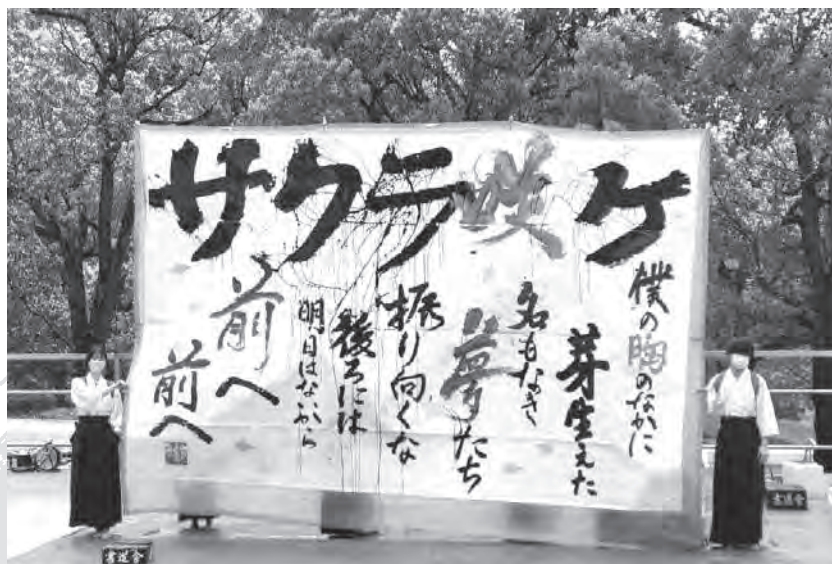 サクラ咲ケ
僕の胸のなかに
芽生えた
名もなき
夢たち
振り向くな
後ろには
明日はないから
前へ
前へ
書道会
書道会